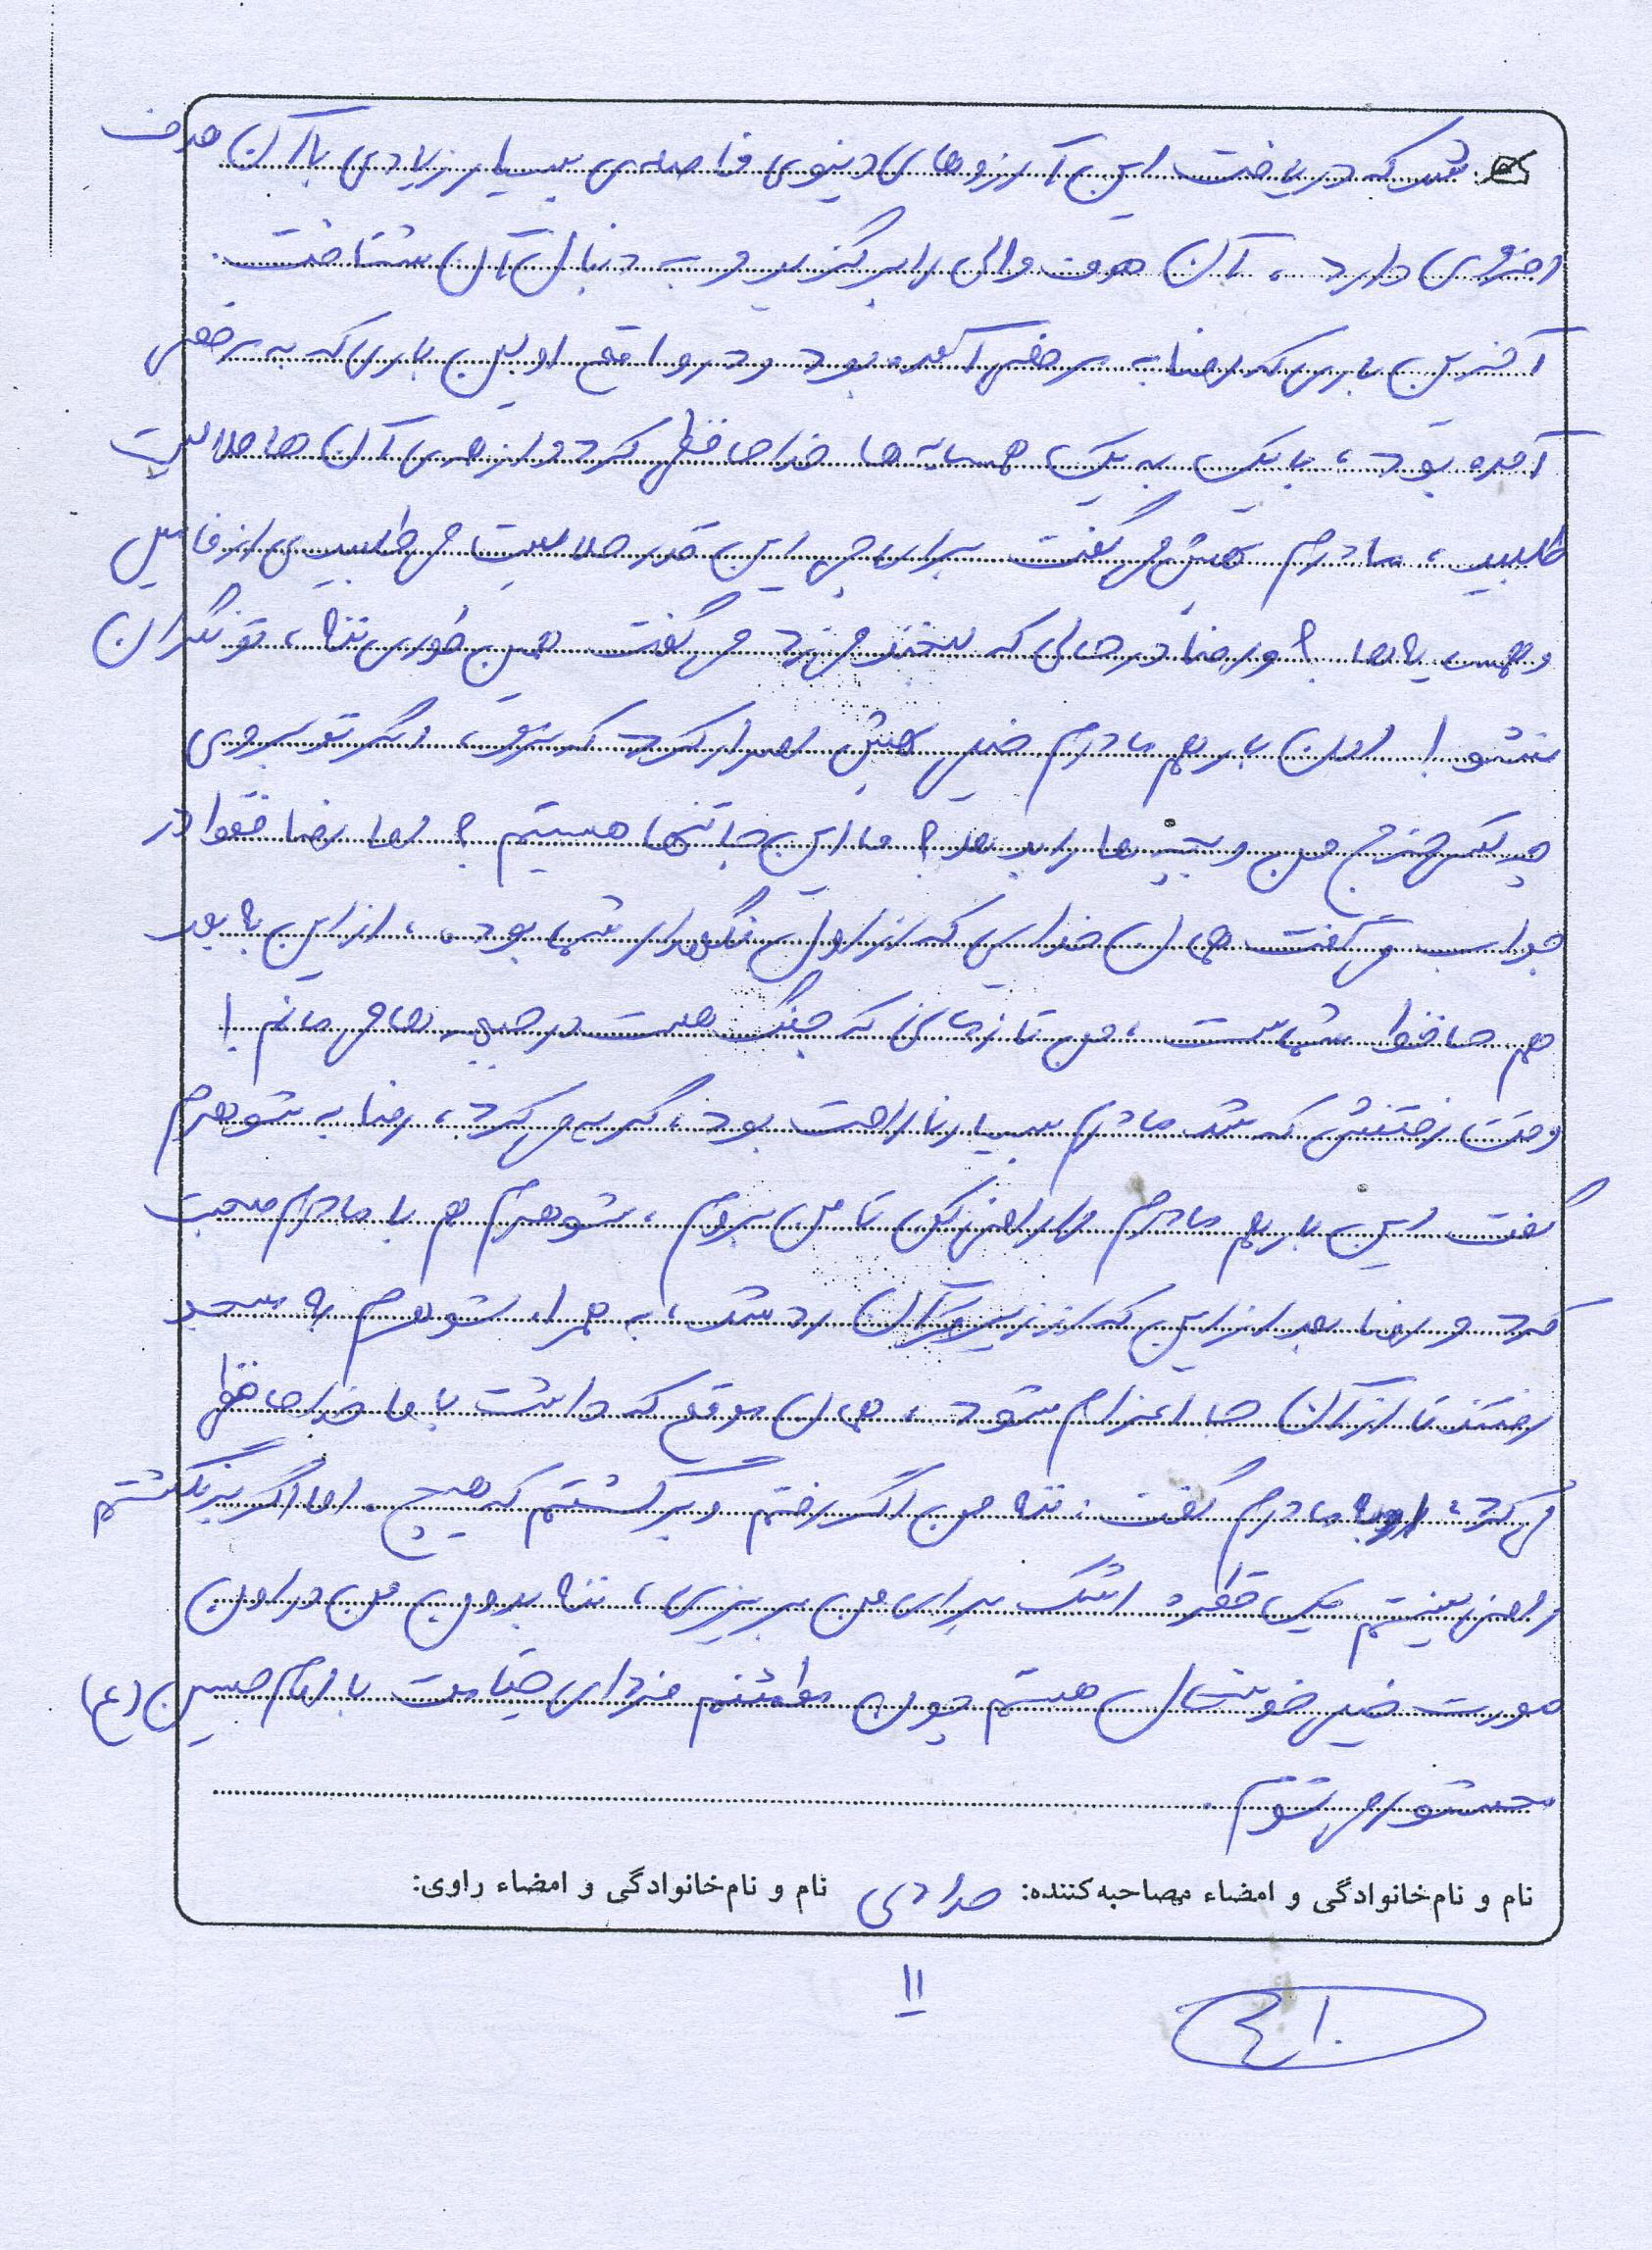 شد که دریافت این آرزوهای دنیوی فاصله‌ی بسیار زیادی با آن هدف
اخروی دارد، آن هدف والی را برگزید و به دنبال آن شتافت.
آخرین باری که رضا به مرخصی آمده بود و در واقع اولین باری که به مرخصی
آمده بود، با یک به یک همسایه ها خداحافظی کرد و از همه‌ی آن ها حلالیت
طلبید، مادرم بهش می گفت برای چی این قدر حلالیت می طلبیدی از فامیل
و همسایه ها؟ و رضا در حالی که لبخند می زد می گفت همین طوری ننه، تو نگران
نشو! اون بار هم مادرم خیلی بهش اصرار کرد که نرو، اگر تو بروی
چه کسی خرج من و بچه ها را بدهد؟ ما این جا تنها هستیم؟ اما رضا فقط در
جواب می گفت همان خدایی که از اول نگهدار شما بوده، از این به بعد
هم حافظ شماست، من تا زمانی که جنگ هست در جبهه ها می مانم!
وقت رفتنش که شد مادرم بسیار ناراحت بود، گریه می کرد، رضا به شوهرم
گفت این بار هم مادرم را راضی کن تا من بروم، شوهرم هم با مادرم صحبت
کرد و رضا بعد از این که از زیر قرآن رد شد، به همراه شوهرم به مسجد
رفتند تا از آن جا اعزام شود، همان موقع که داشت با ما خداحافظی
می کرد، به مادرم گفت: ننه من اگر رفتم و برگشتم که هیچ. اما اگر برنگشتم
راضی نیستم یک قطره اشک برای من بریزی، ننه بدون من در اون
صورت خیلی خوشحال هستم چون مطمئنم فردای قیامت با امام حسین (ع)
محشور می شوم.
نام و نام‌خانوادگی و امضاء مصاحبه‌کننده: نام و نام‌خانوادگی و امضاء راوی:
۱۱